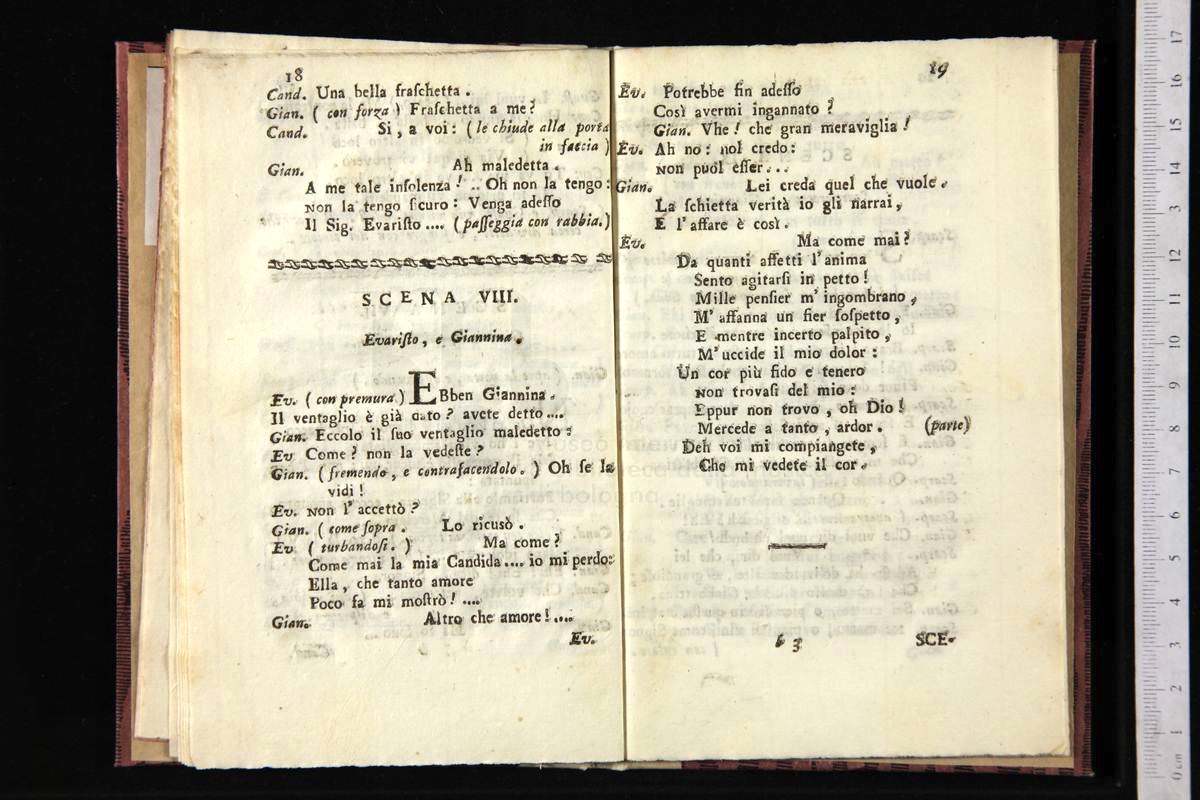 18
Cand. Una bella fraſchetta.
Gian. (con forza) Fraſchetta a me?
Cand. Si, a voi: (le chiude alla porta
in faccia)
Gian. Ah maledetta.
A me tale inſolenza! .. Oh non la tengo:
Non la tengo ſicuro: Venga adeſſo
Il Sig. Evariſto .... (paſſeggia con rabbia.)
SCENA VIII.
Evariſto, e Giannina.
Ev. (con premura) EBben Giannina.
Il ventaglio è già dato? avete detto ....
Gian. Eccolo il ſuo ventaglio maledetto:
Ev Come? non la vedeſte?
Gian. (fremendo, e contrafacendolo.) Oh ſe la
vidi!
Ev. Non l'accettò?
Gian. (come ſopra. Lo ricusò.
Ev (turbandoſi.) Ma come?
Come mai la mia Candida .... io mi perdo:
Ella, che tanto amore
Poco fa mi moſtrò! ....
Gian. Altro che amore! ....
Ev.
19
Ev. Potrebbe fin adeſſo
Così avermi ingannato?
Gian. Vhe! che gran meraviglia!
Ev. Ah no: nol credo:
Non puol eſſer...
Gian. Lei creda quel che vuole.
La ſchietta verità io gli narrai,
E l'affare è così.
Ev. Ma come mai?
Da quanti affetti l'anima
Sento agitarſi in petto!
Mille penſier m'ingombrano,
M'affanna un fier ſoſpetto,
E mentre incerto palpito,
M'uccide il mio dolor:
Un cor più fido e tenero
Non trovaſi del mio:
Eppur non trovo, oh Dio!
Mercede a tanto, ardor. (parte)
Deh voi mi compiangete,
Che mi vedete il cor.
b 3 SCE-